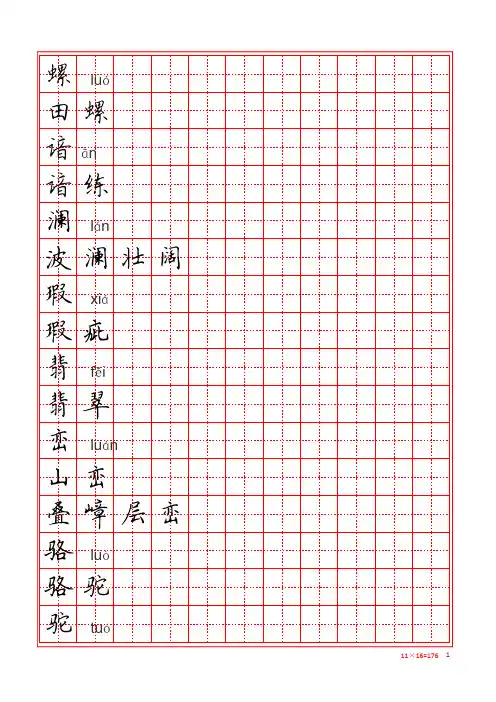 螺 luó
田螺
谙 ān
谙练
澜 lán
波澜壮阔
瑕 xiá
瑕疵
翡 fěi
翡翠
峦 luán
山峦
叠嶂层峦
骆 luò
骆驼
驼 tuó
11×16=176 1